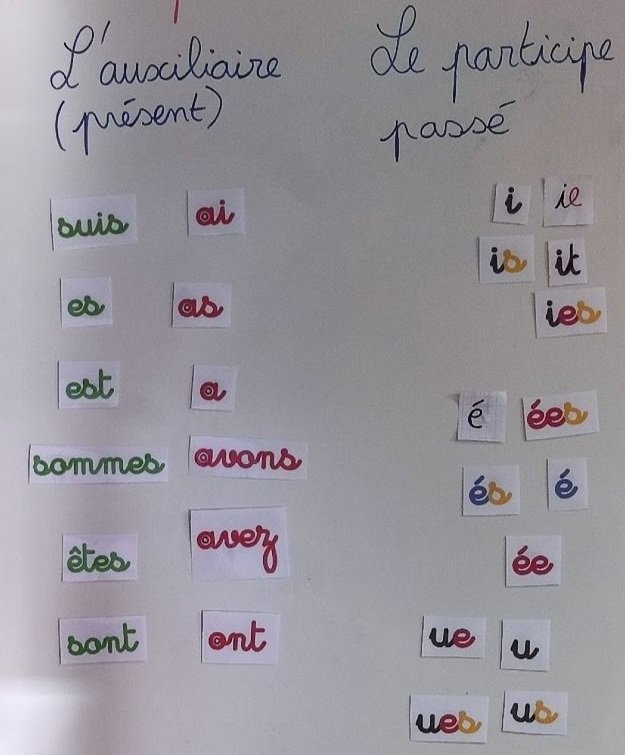 L'auxiliaire
(présent)
Le participe
passé
suis ai
es as
est a
sommes avons
êtes avez
sont ont
i ie
is it
ies
é ées
és é
ée
ue u
ues us